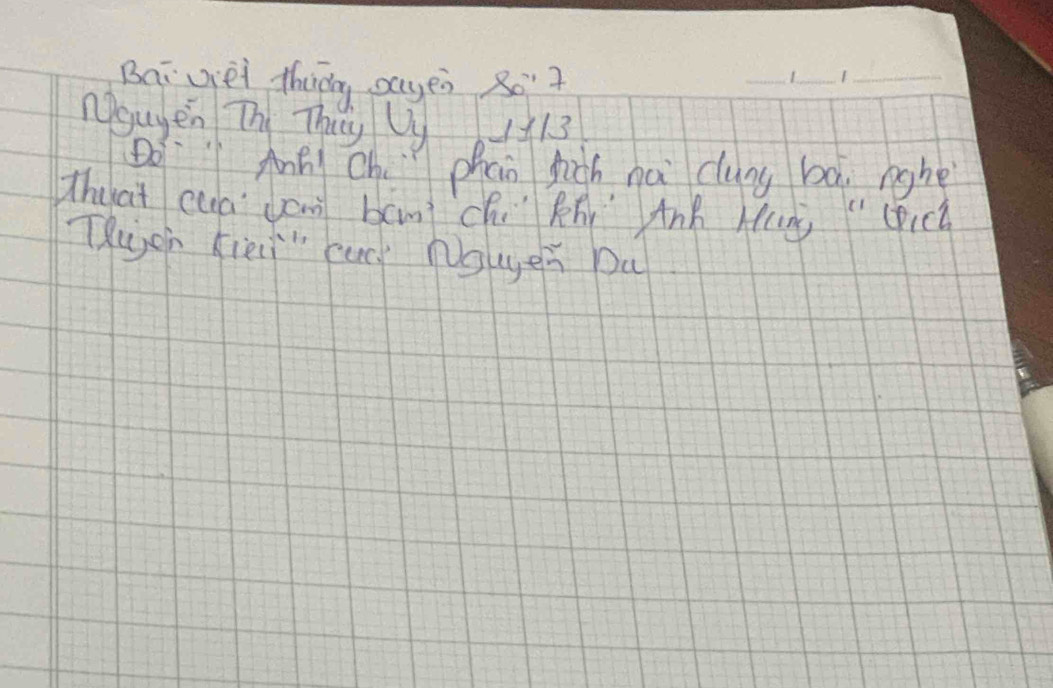 Bài viết thường xuyên số 7
Nguyễn Thị Thuý Vy 11/3
Đề: "Anh/ Chị" phân tích nội dung và nghệ
thuật của văn bản chí khí Anh Hùng "trích
Truyện Kiều" của Nguyễn Du